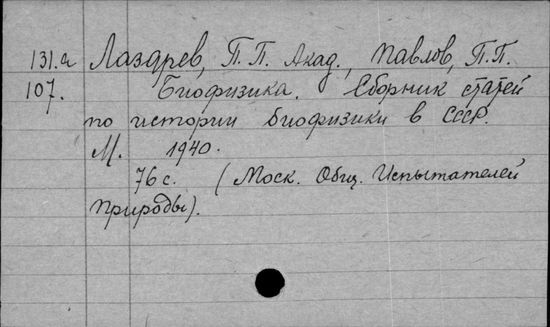 131.а Лазарев, П.П. Акад., Павлов, П.П.
107. Биофизика. Сборник статей
по истории биофизики в СССР.
М. 1940.
76 с. (Моск. Общ. Испытателей
Природы).